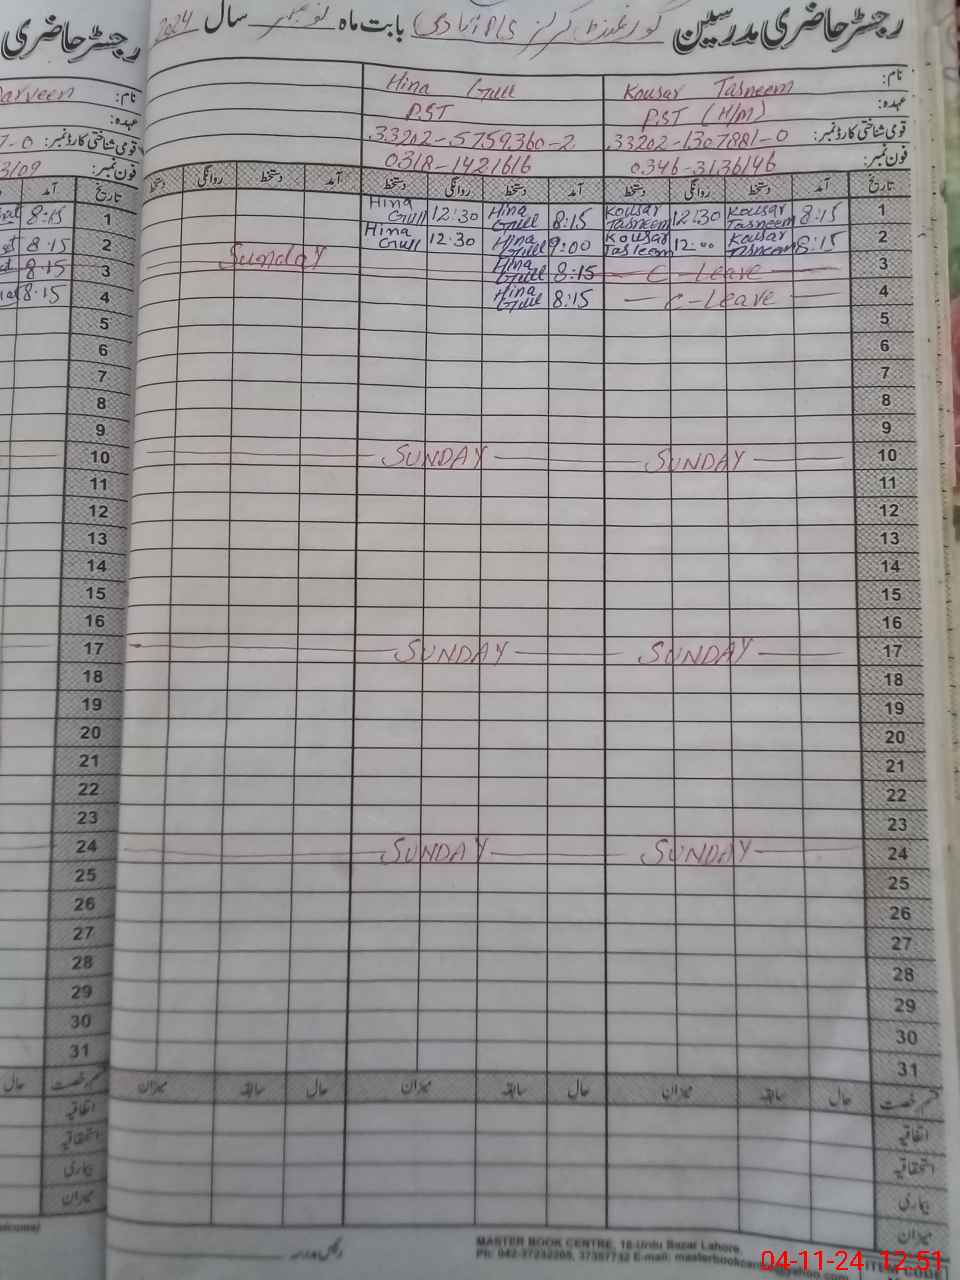 رجسٹر حاضری مدرسین گورنمنٹ گرلز P/S آبادی بابت ماہ نومبر سال 2024
رجسٹر حاضری
نام: Kousar Tasneem Hina Gull
عہدہ: P.S.T (H/M) P.S.T
قومی شناختی کارڈ نمبر: 33202-1307881-0 33202-5759360-2
فون نمبر: 0346-3136146 0318-1421616
arveen نام:
عہدہ:
7-0 قومی شناختی کارڈ نمبر:
3109 فون نمبر:
تاریخ آمد دستخط روانگی دستخط آمد دستخط روانگی دستخط آمد دستخط روانگی دستخط
آمد تاریخ
1 8:15 Kousar Tasneem 12:30 Kousar Tasneem 8:15 Hina Gull 12:30 Hina Gull
2 8:15 Kousar Tasneem 12:00 Kousar Tasleem 9:00 Hina Gull 12.30 Hina Gull
3 C - Leave 8:15 Hina Gull Sunday
4 C-Leave 8:15 Hina Gull
5
6
7
8
9
10 SUNDAY SUNDAY
11
12
13
14
15
16
17 SUNDAY SUNDAY
18
19
20
21
22
23
24 SUNDAY SUNDAY
25
26
27
28
29
30
31
8:15 1
8:15 2
8:15 3
8:15 4
5
6
7
8
9
10
11
12
13
14
15
16
17
18
19
20
21
22
23
24
25
26
27
28
29
30
31
قسم رخصت حال سابقہ میزان حال سابقہ میزان حال سابقہ میزان
اتفاقیہ
استحقاقیہ
بیماری
میزان
حال قسم رخصت
اتفاقیہ
استحقاقیہ
بیماری
میزان
MASTER BOOK CENTRE, 18-Urdu Bazar Lahore.
Ph: 042-37232205, 37357732 E-mail:
04-11-24 12:51